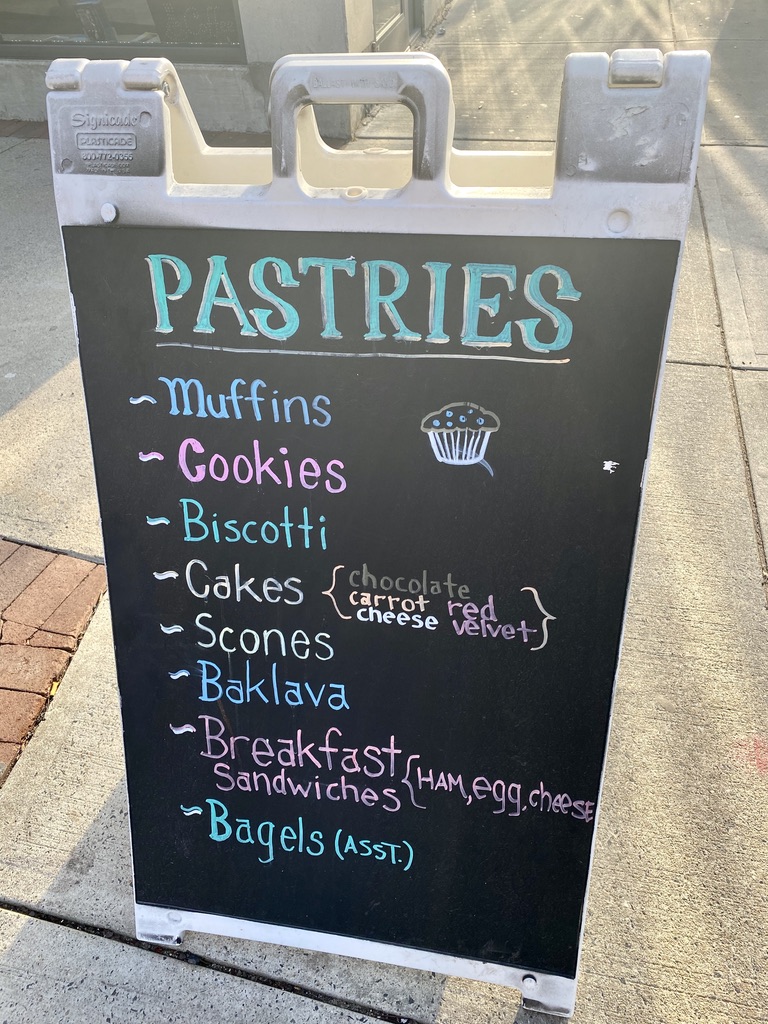 Signicade
PLASTICADE
PASTRIES
~Muffins
~Cookies
~Biscotti
~Cakes {chocolate
carrot red
cheese velvet}
~Scones
~Baklava
~Breakfast
Sandwiches {HAM, egg, cheese
~Bagels (ASST.)